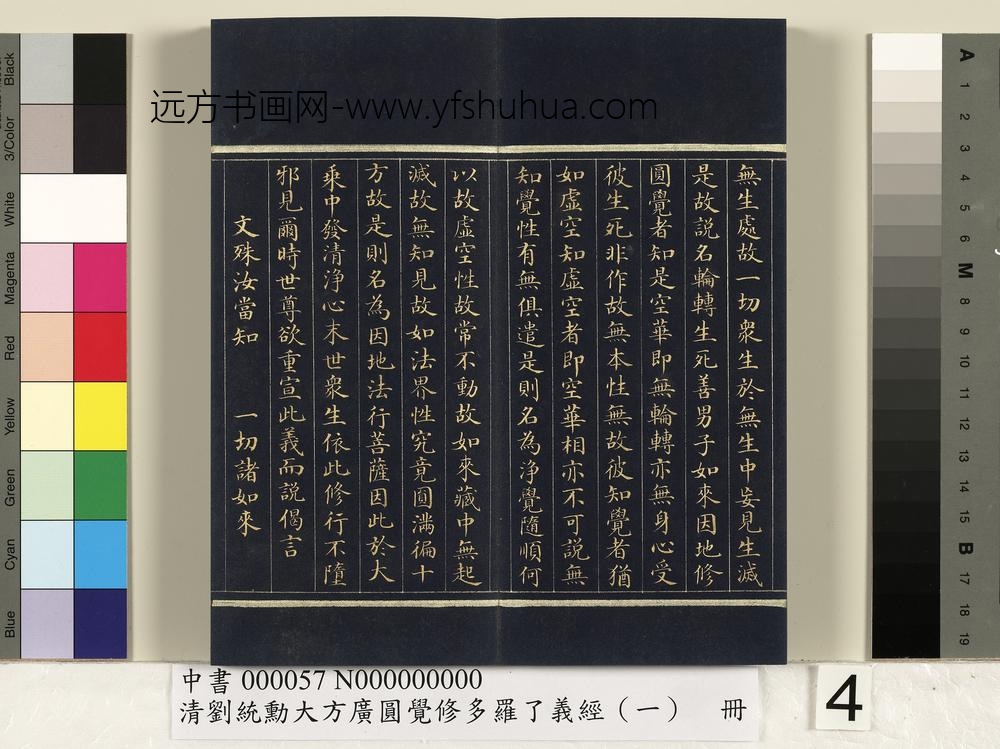 远方书画网-www.yfshuhua.com
無生處故一切衆生於無生中妄見生滅
是故説名輪轉生死善男子如來因地修
圓覺者知是空華即無輪轉亦無身心受
彼生死非作故無本性無故彼知覺者猶
如虛空知虛空者即空華相亦不可説無
知覺性有無俱遣是則名為淨覺隨順何
以故虛空性故常不動故如來藏中無起
滅故無知見故如法界性究竟圓滿徧十
方故是則名為因地法行菩薩因此於大
乘中發清淨心末世衆生依此修行不墮
邪見爾時世尊欲重宣此義而説偈言
文殊汝當知 一切諸如來
中書 000057 N000000000
清劉統勳大方廣圓覺修多羅了義經（一） 冊
4
Black
3/Color
White
Magenta
Red
Yellow
Green
Cyan
Blue
A
1
2
3
4
5
6
M
8
9
10
11
12
13
14
15
B
17
18
19